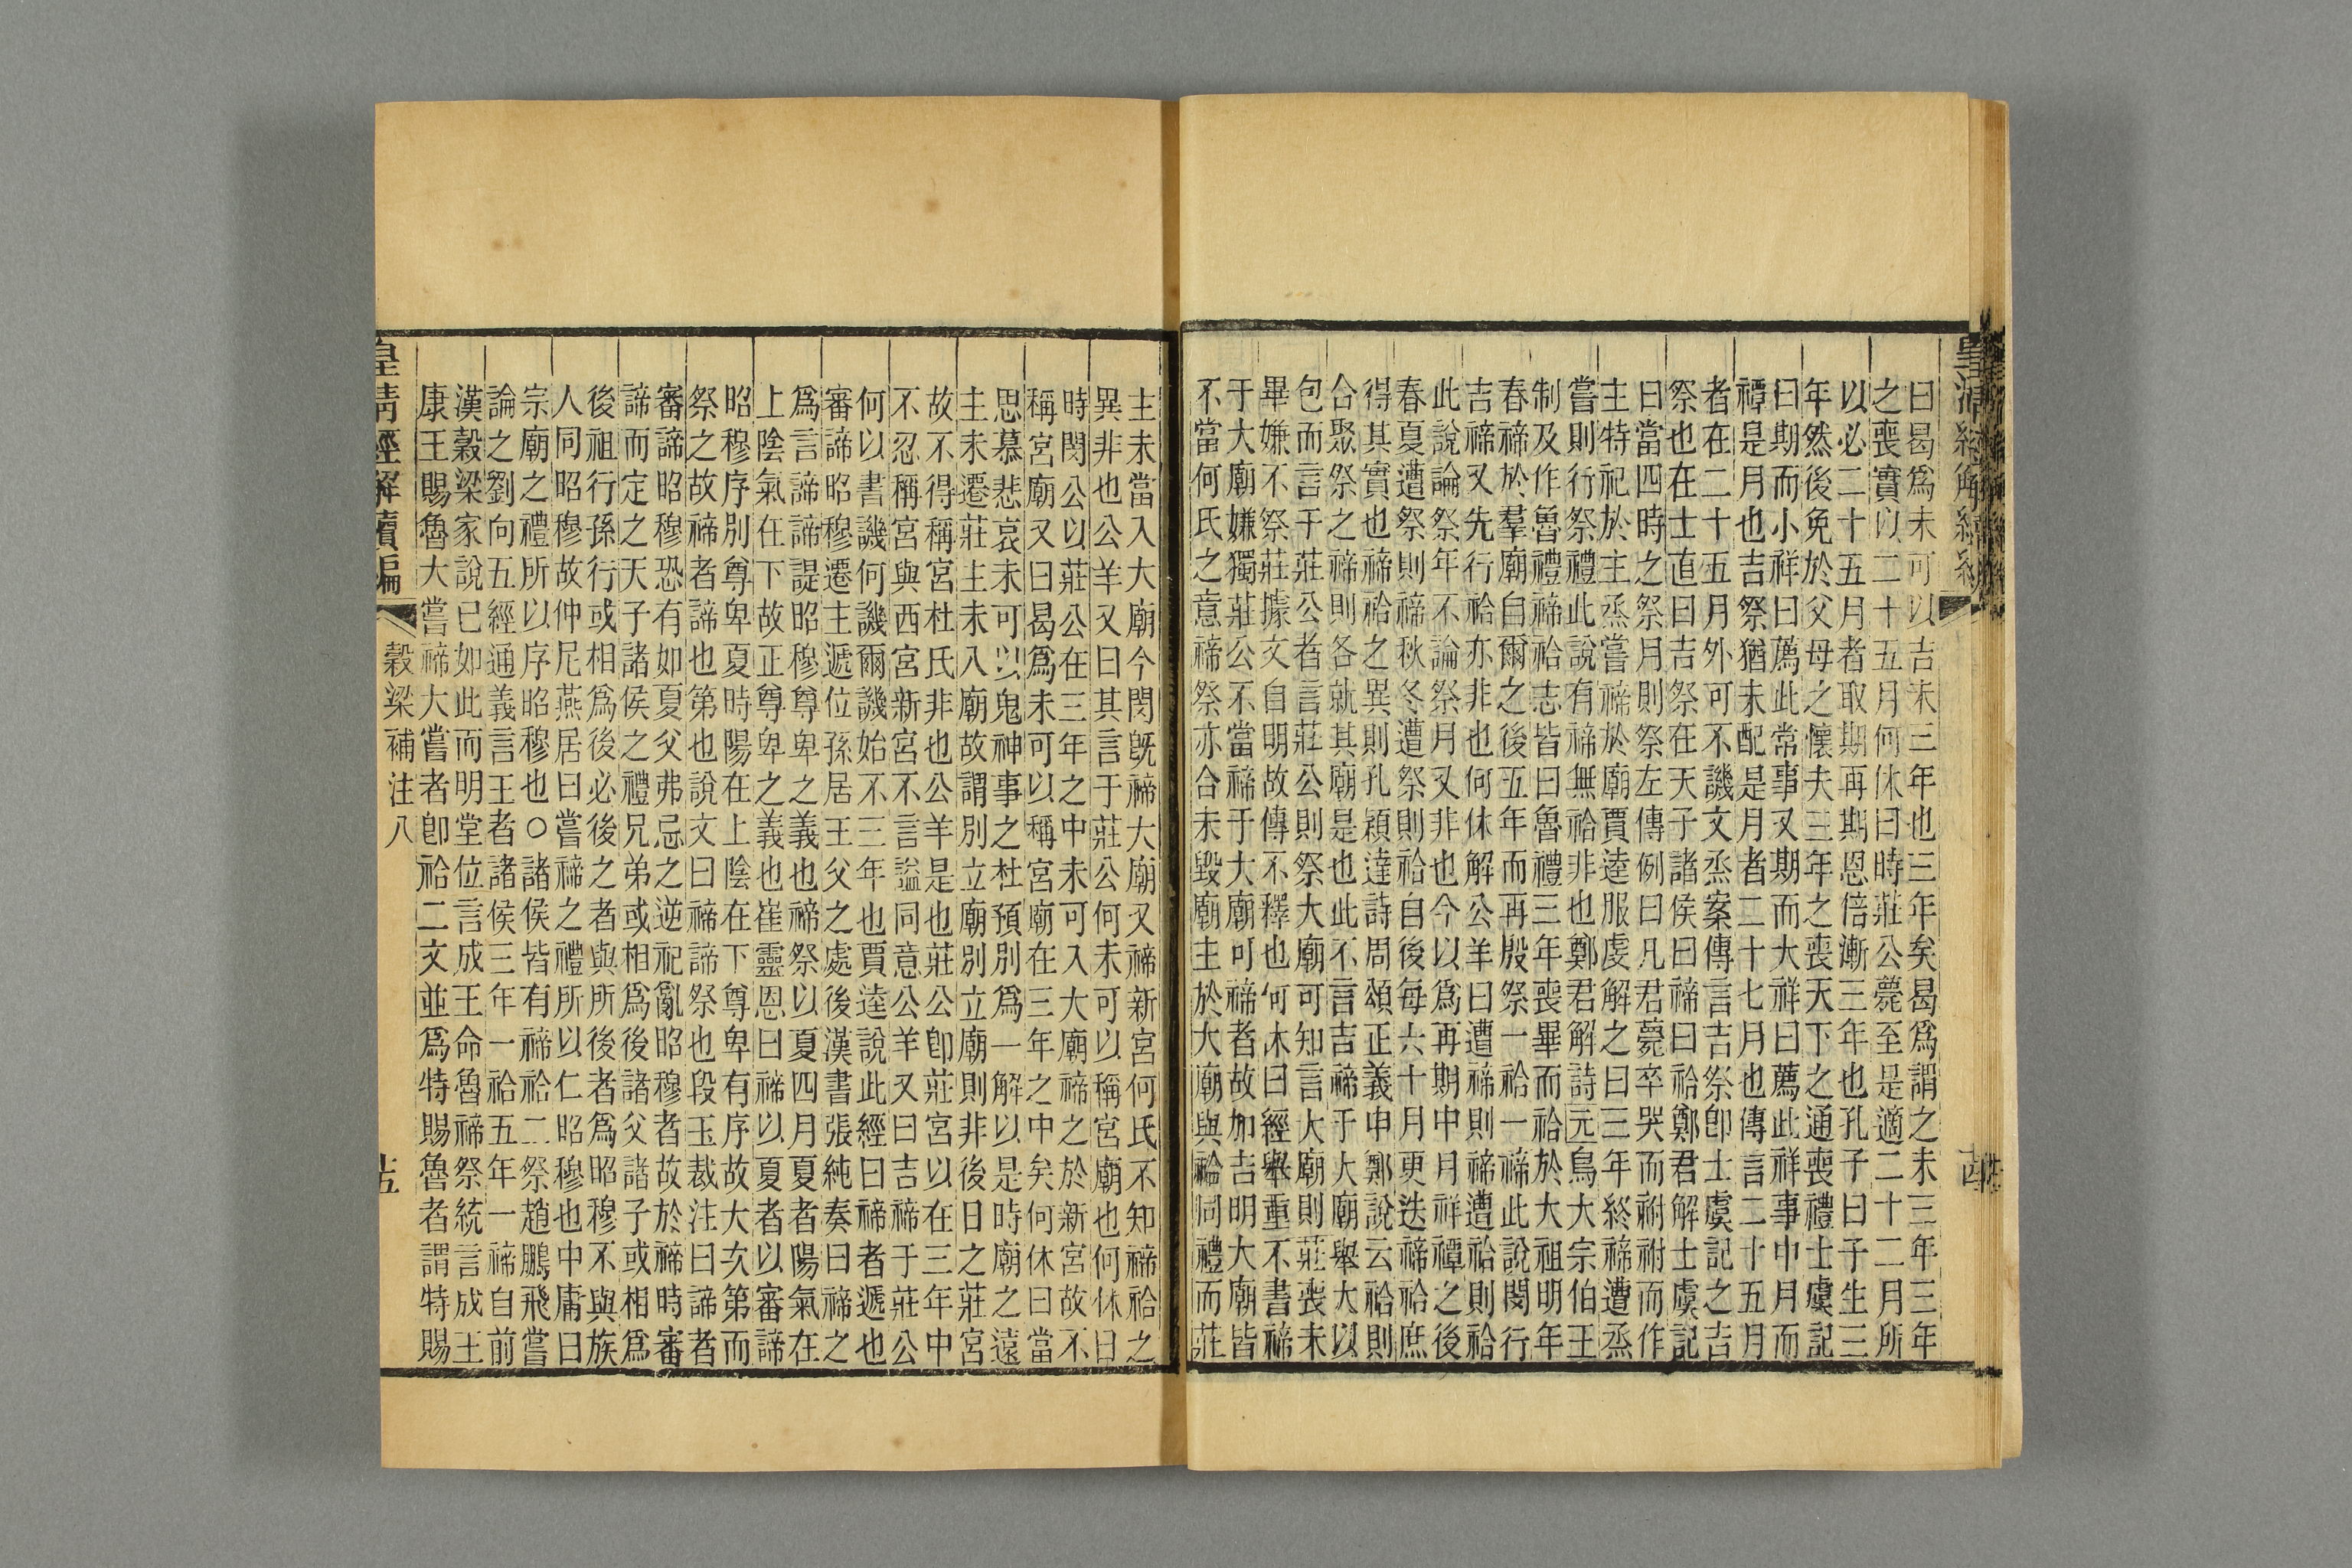 曰曷爲未可以吉未三年也三年矣曷爲謂之未三年三年
之喪實以二十五月何休曰時莊公薨至是適二十二月所
以必二十五月者取期再期恩倍漸三年也孔子曰子生三
年然後免於父母之懷夫三年之喪天下之通喪禮士虞記
曰期而小祥曰薦此常事又期而大祥曰薦此祥事中月而
禫是月也吉祭猶未配是月者二十七月也傳言二十五月
者在二十五月外可不譏文烝案傳言吉祭卽士虞記之吉
祭也在士直曰吉祭在天子諸侯曰禘曰祫鄭君解士虞記
曰當四時之祭月則祭左傳例曰凡君薨卒哭而祔祔而作
主特祀於主烝嘗禘於廟賈逵服虔解之曰三年終禘遭烝
嘗則行祭禮此說有禘無祫非也鄭君解詩元鳥大宗伯王
制及作魯禮禘祫志皆曰魯禮三年喪畢而祫於大祖明年
春禘於羣廟自爾之後五年而再殷祭一祫一禘此說閔行
吉禘又先行祫亦非也何休解公羊曰遭禘則禘遭祫則祫
此說論祭年不論祭月又非也今以爲再期中月祥禫之後
春夏遭祭則禘秋冬遭祭則祫自後每六十月更迭禘祫庶
得其實也禘祫之異則孔穎達詩周頌正義申鄭說云祫則
合聚祭之禘則各就其廟是也此不言吉禘于大廟舉大以
包而言于莊公者言莊公則祭大廟可知言大廟則莊喪未
畢嫌不祭莊據文自明故傳不釋也何休曰經舉重不書禘
于大廟嫌獨莊公不當禘于大廟可禘者故加吉明大廟皆
不當何氏之意禘祭亦合未毀廟主於大廟與祫同禮而莊
主未當入大廟今閔旣禘大廟又禘新宮何氏不知禘祫之
異非也公羊又曰其言于莊公何未可以稱宮廟也何休曰
時閔公以莊公在三年之中未可入大廟禘之於新宮故不
稱宮廟又曰曷爲未可以稱宮廟在三年之中矣何休曰當
思慕悲哀未可以鬼神事之杜預別爲一解以是時廟之遠
主未遷莊主未入廟故謂別立廟別立廟則非後日之莊宮
故不得稱宮杜氏非也公羊是也莊公卽莊宮以在三年中
不忍稱宮與西宮新宮不言謚同意公羊又曰吉禘于莊公
何以書譏何譏爾譏始不三年也賈逵說此經曰禘者遞也
審諦昭穆遷主遞位孫居王父之處後漢書張純奏曰禘之
爲言諦諟昭穆尊卑之義也禘祭以夏四月夏者陽氣在
上陰氣在下故正尊卑之義也崔靈恩曰禘以夏者以審諦
昭穆序別尊卑夏時陽在上陰在下尊卑有序故大次第而
祭之故禘者諦也第也說文曰禘諦祭也段玉裁注曰諦者
審諦昭穆恐有如夏父弗忌之逆祀亂昭穆者故於禘時審
諦而定之天子諸侯之禮兄弟或相爲後諸父諸子或相爲
後祖行孫行或相爲後必後之者與所後者爲昭穆不與族
人同昭穆故仲尼燕居曰嘗禘之禮所以仁昭穆也中庸曰
宗廟之禮所以序昭穆也〇諸侯皆有禘祫二祭趙鵬飛嘗
論之劉向五經通義言王者諸侯三年一祫五年一禘自前
漢穀梁家說已如此而明堂位言成王命魯禘祭統言成王
康王賜魯大嘗禘大嘗者卽祫二文並爲特賜魯者謂特賜
皇清經解續編
穀梁補注八